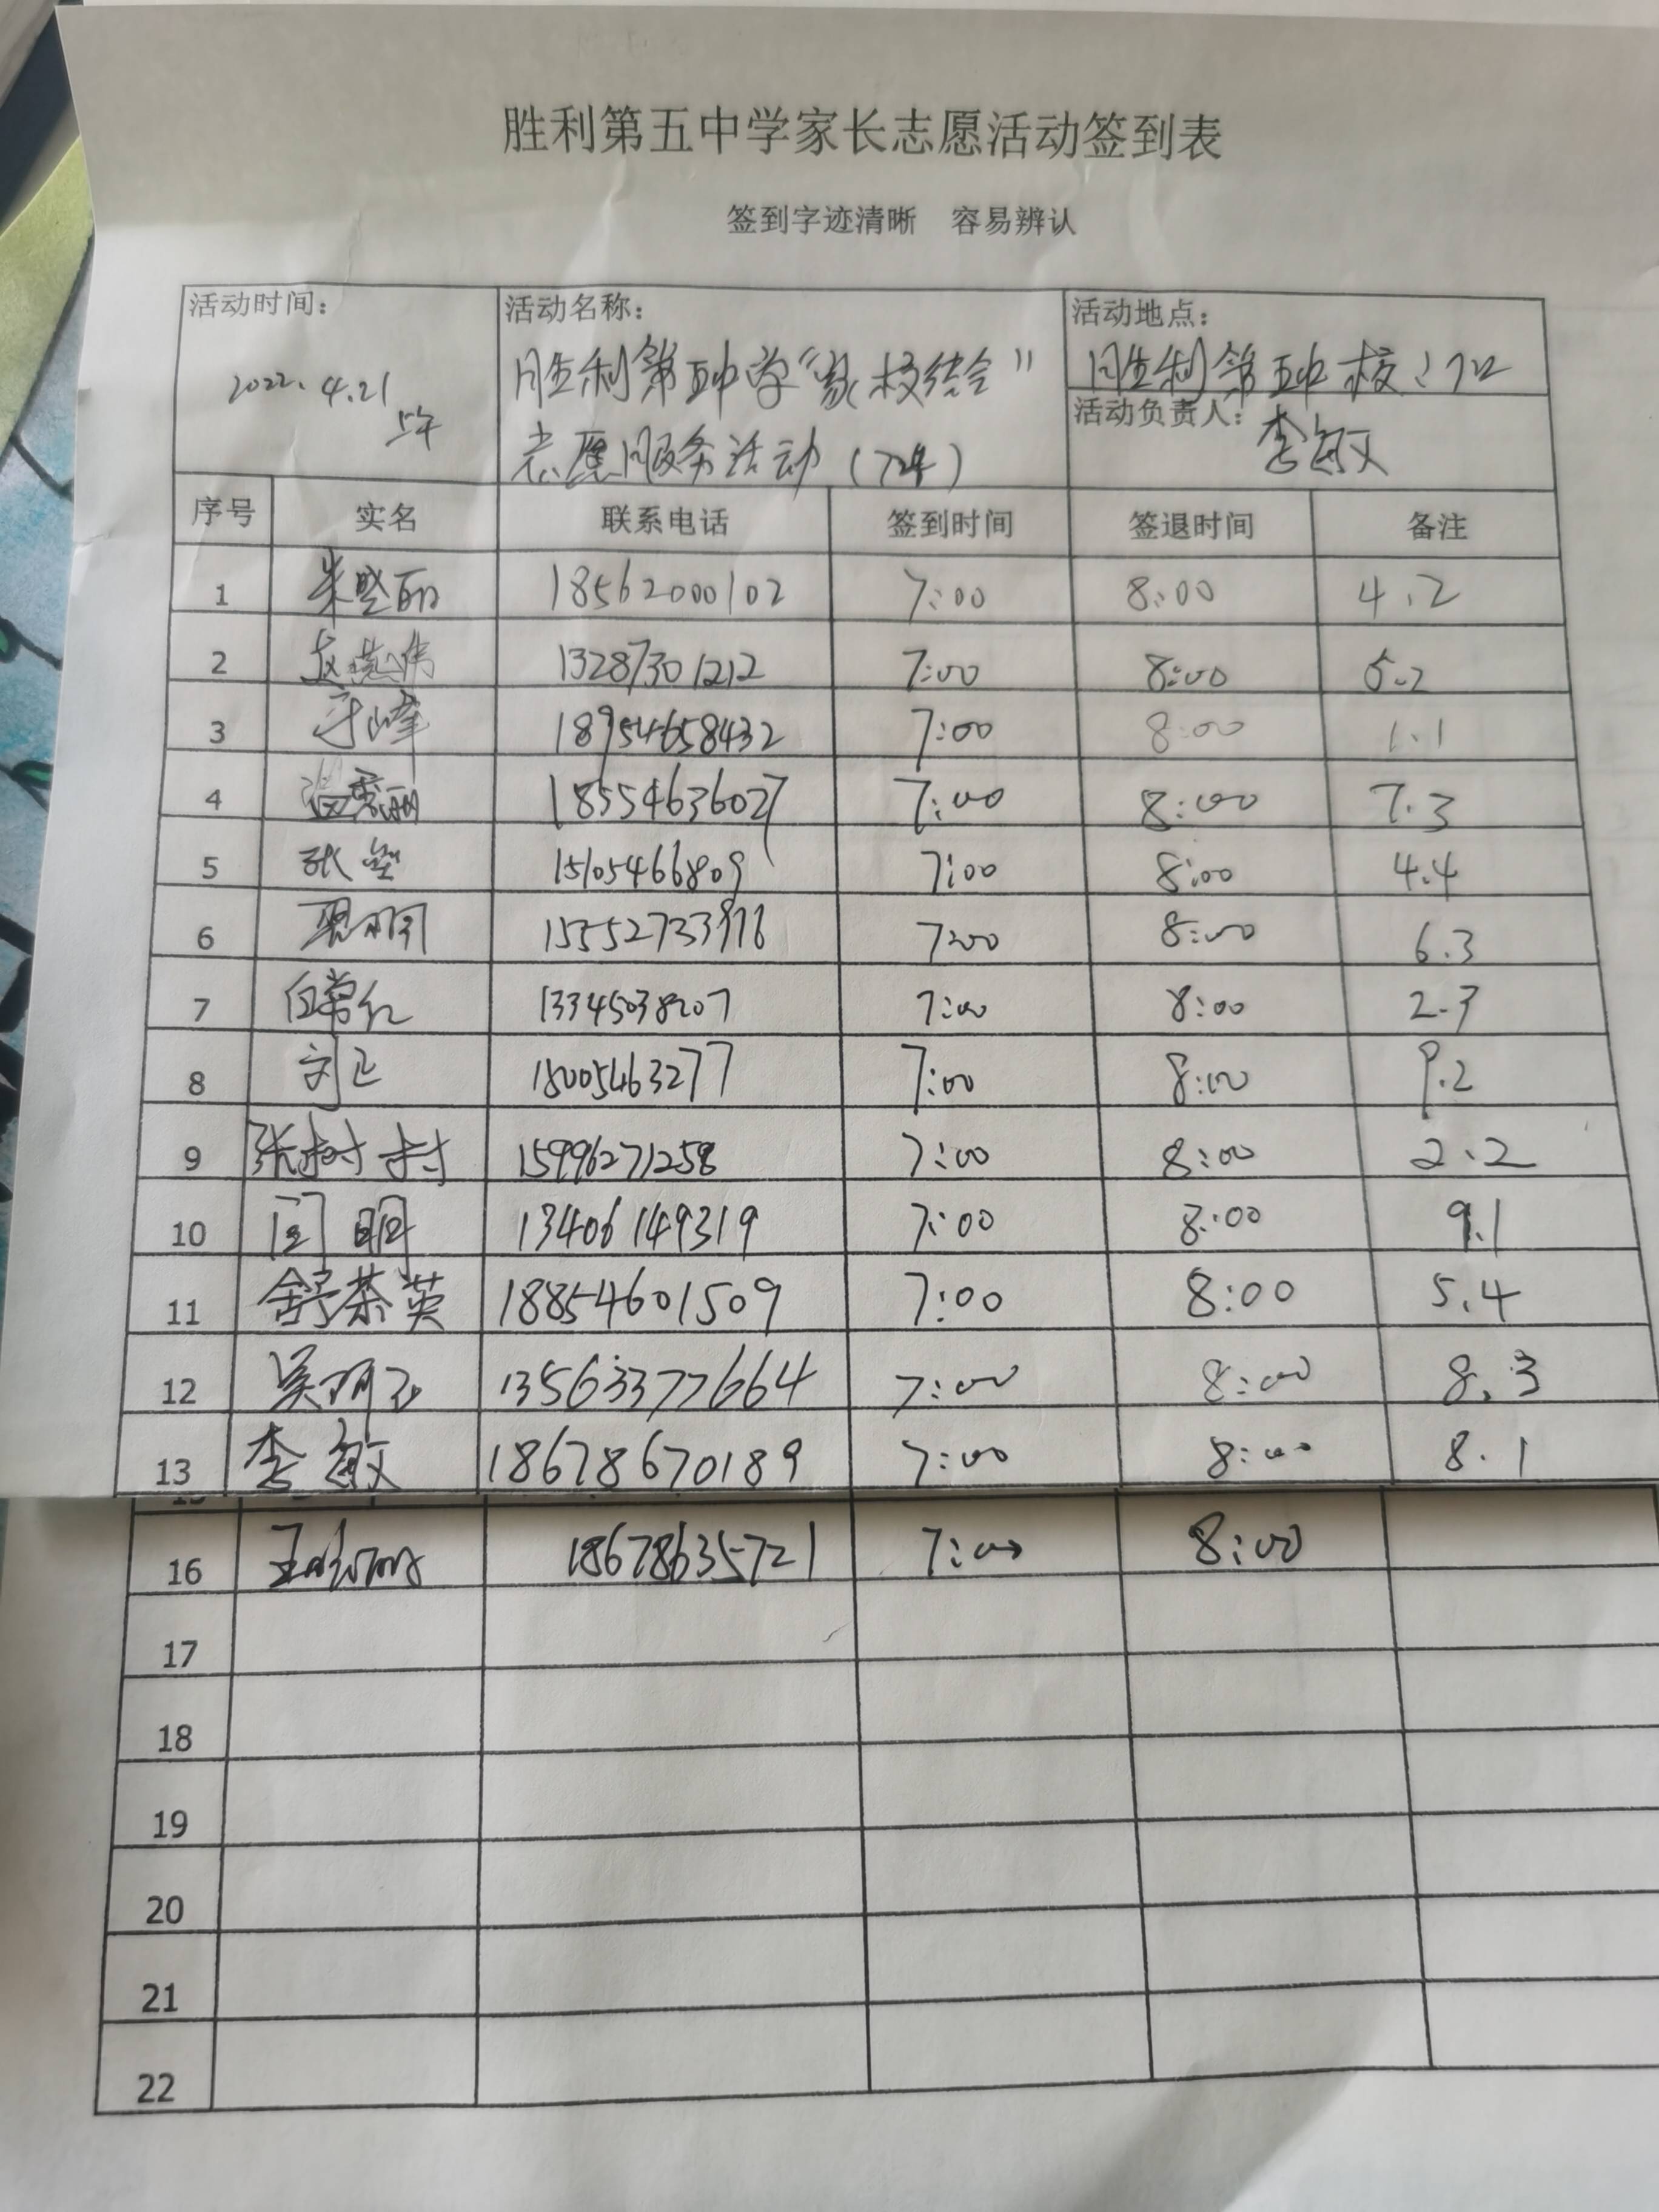 胜利第五中学家长志愿活动签到表
签到字迹清晰 容易辨认
活动时间: 2022.4.21 上午
活动名称: 胜利第五中学“家校结合”
志愿服务活动(7年)
活动地点: 胜利第五中校门口
活动负责人: 李敏
序号 实名 联系电话 签到时间 签退时间 备注
1 18562000102 7:00 8:00 4.2
2 13287301212 7:00 8:00 5.2
3 于峰 18954658432 7:00 8:00 1.1
4 18554636027 7:00 8:00 7.3
5 张莹 15105466809 7:00 8:00 4.4
6 7:00 8:00 6.3
7 白常红 13345038207 7:00 8:00 2.3
8 刘正 18005463277 7:00 8:00 9.2
9 张树村 15996271258 7:00 8:00 2.2
10 闫明 13406149319 7:00 8:00 9.1
11 舒茶英 18854601509 7:00 8:00 5.4
12 吴明玉 13563377664 7:00 8:00 8.3
13 李敏 18678670189 7:00 8:00 8.1
16 18678635721 7:00 8:00
17
18
19
20
21
22